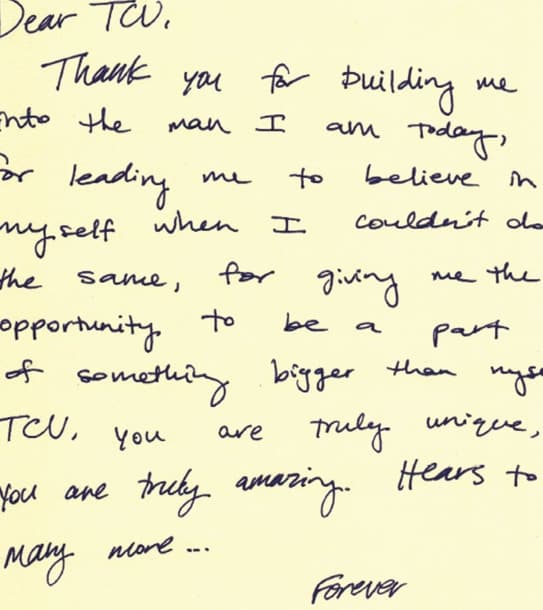 Dear TCU,
Thank you for building me
into the man I am today,
for leading me to believe in
myself when I couldn't do
the same, for giving me the
opportunity to be a part
of something bigger than myse
TCU, you are truly unique,
you are truly amazing. Hears to
many more...
Forever